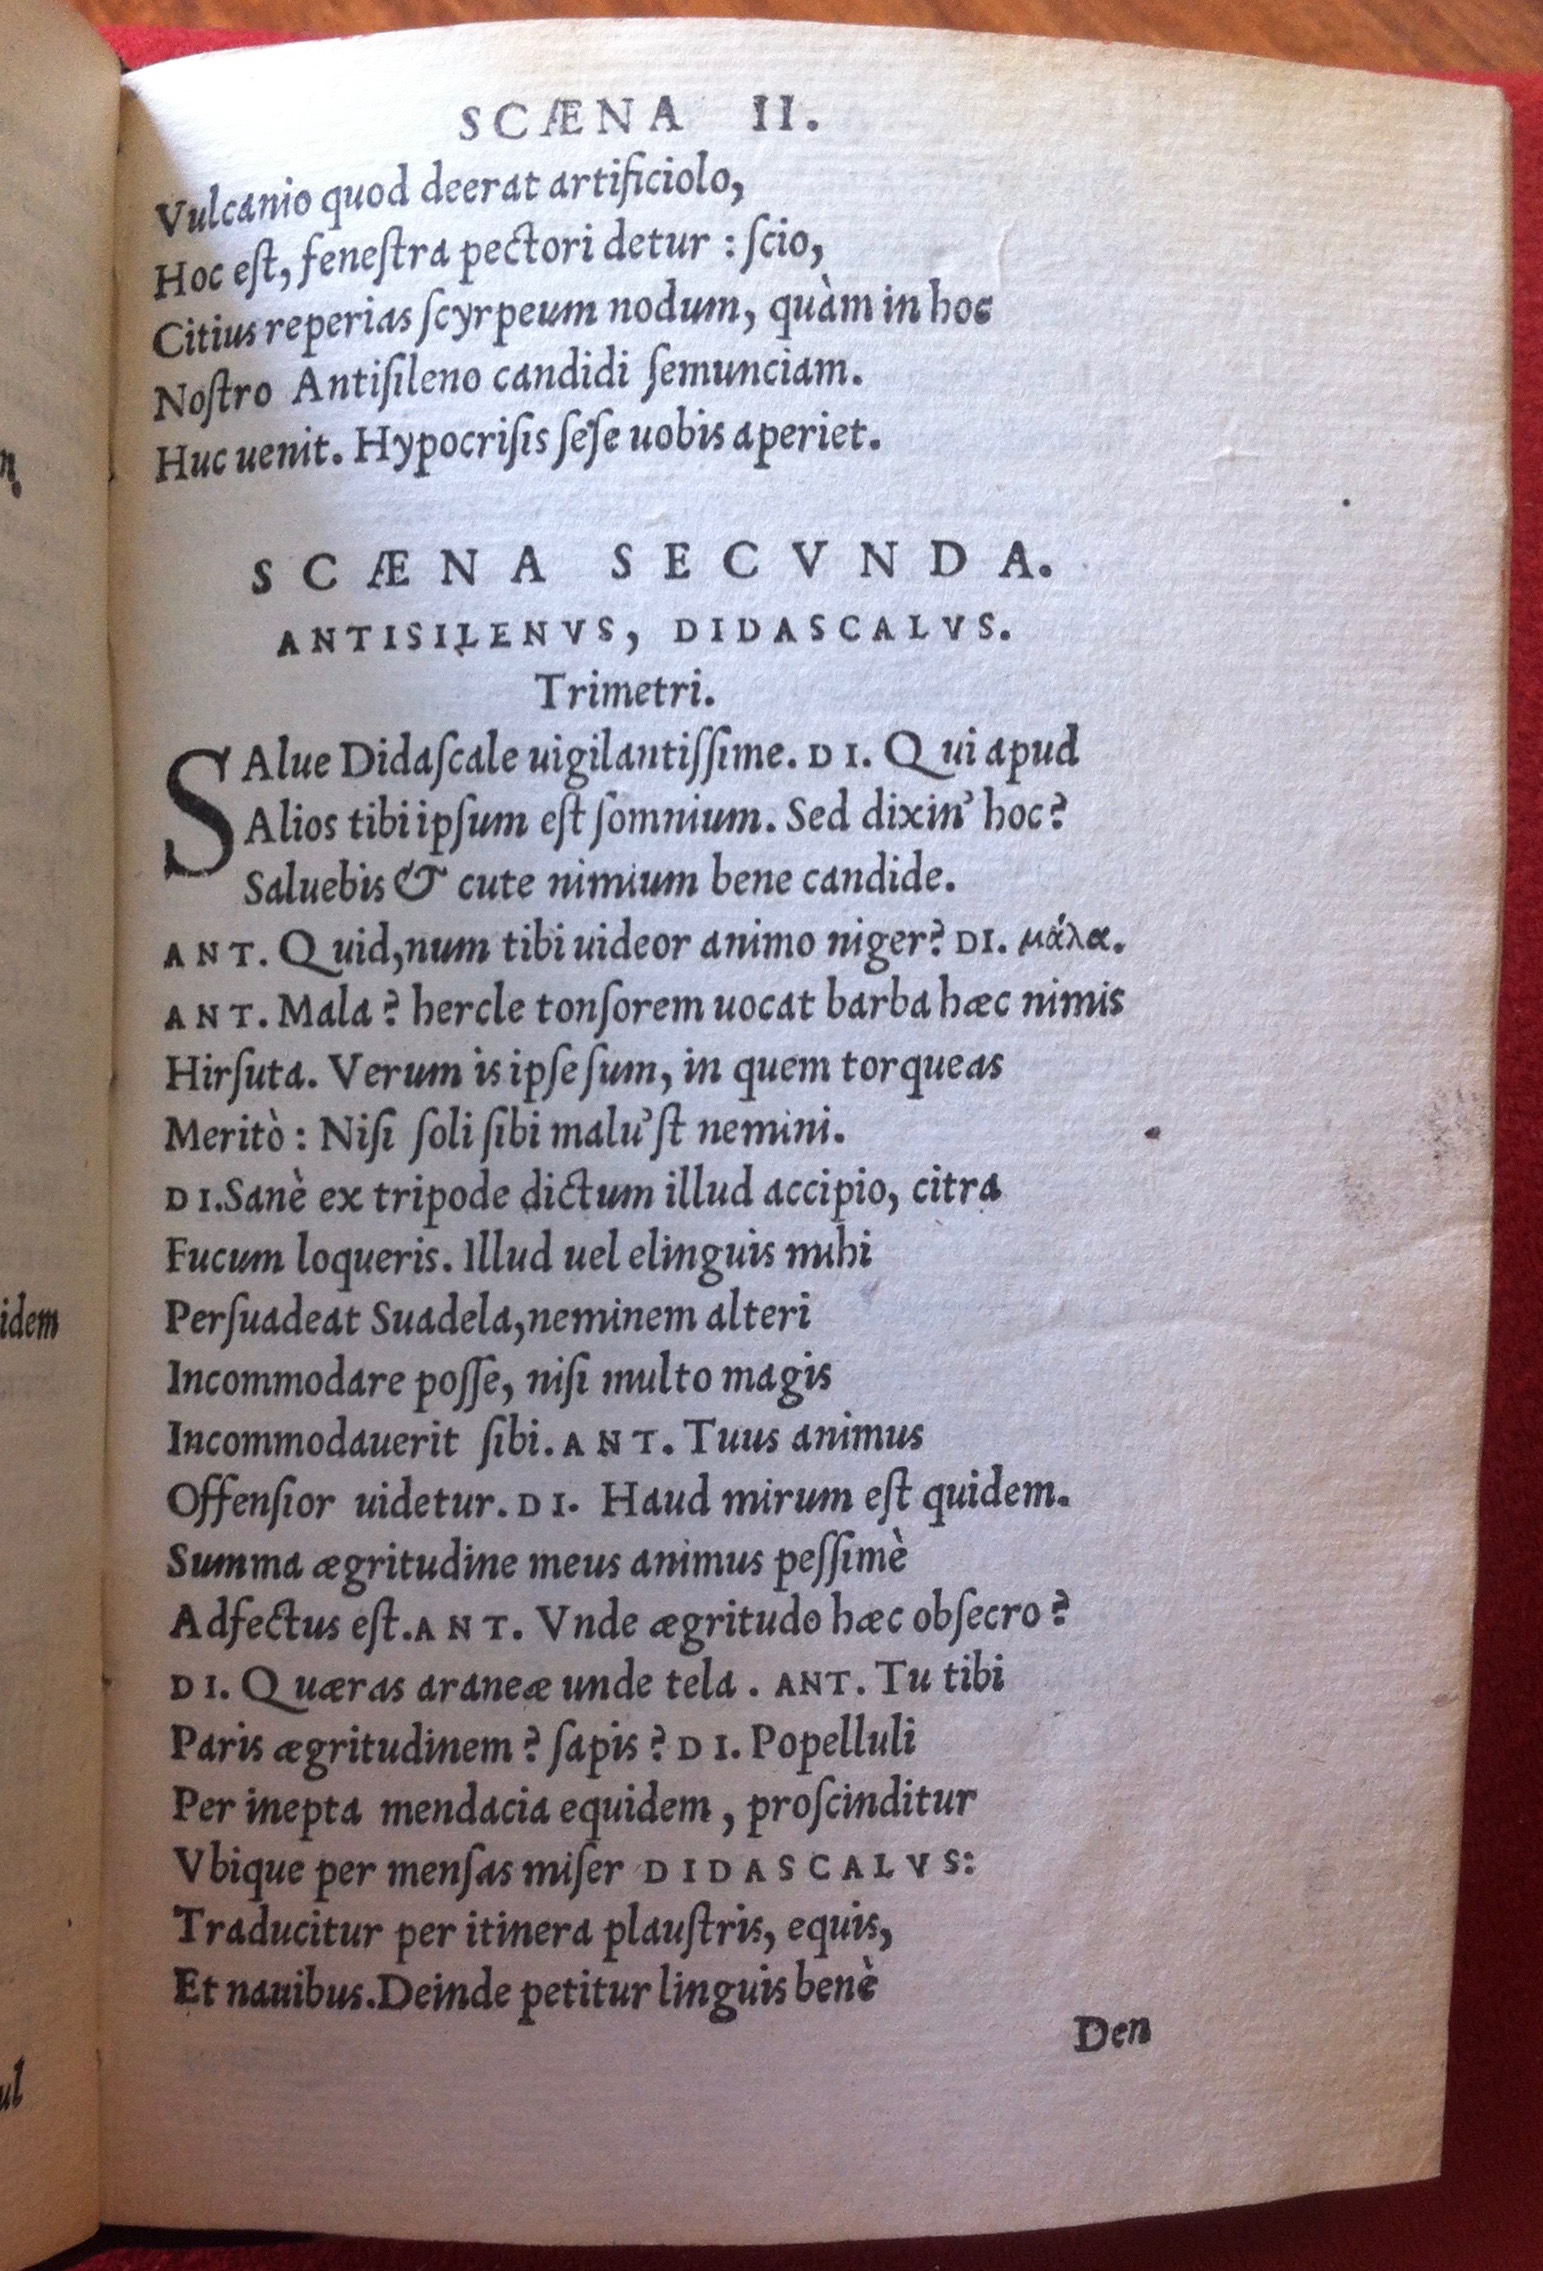 SCÆNA II.
Vulcanio quod deerat artificiolo,
Hoc eſt, feneſtra pectori detur : ſcio,
Citius reperias ſcyrpeum nodum, quàm in hoc
Noſtro Antiſileno candidi ſemunciam.
Huc uenit. Hypocriſis ſeſe uobis aperiet.
SCÆNA SECVNDA.
ANTISILENVS, DIDASCALVS.
Trimetri.
SAlue Didaſcale uigilantiſſime. DI. Qui apud
Alios tibi ipſum eſt ſomnium. Sed dixin' hoc?
Saluebis & cute nimium bene candide.
ANT. Quid, num tibi uideor animo niger? DI. μάλα.
ANT. Mala? hercle tonſorem uocat barba hæc nimis
Hirſuta. Verum is ipſe ſum, in quem torqueas
Meritò : Niſi ſoli ſibi malu'ſt nemini.
DI. Sanè ex tripode dictum illud accipio, citra
Fucum loqueris. Illud uel elinguis mihi
Perſuadeat Suadela, neminem alteri
Incommodare poſſe, niſi multo magis
Incommodauerit ſibi. ANT. Tuus animus
Offenſior uidetur. DI. Haud mirum eſt quidem.
Summa ægritudine meus animus peſſimè
Adfectus eſt. ANT. Vnde ægritudo hæc obſecro?
DI. Quæras araneæ unde tela. ANT. Tu tibi
Paris ægritudinem? ſapis? DI. Popelluli
Per inepta mendacia equidem, proſcinditur
Vbique per menſas miſer DIDASCALVS:
Traducitur per itinera plauſtris, equis,
Et nauibus. Deinde petitur linguis benè
Den
n.
idem
ul